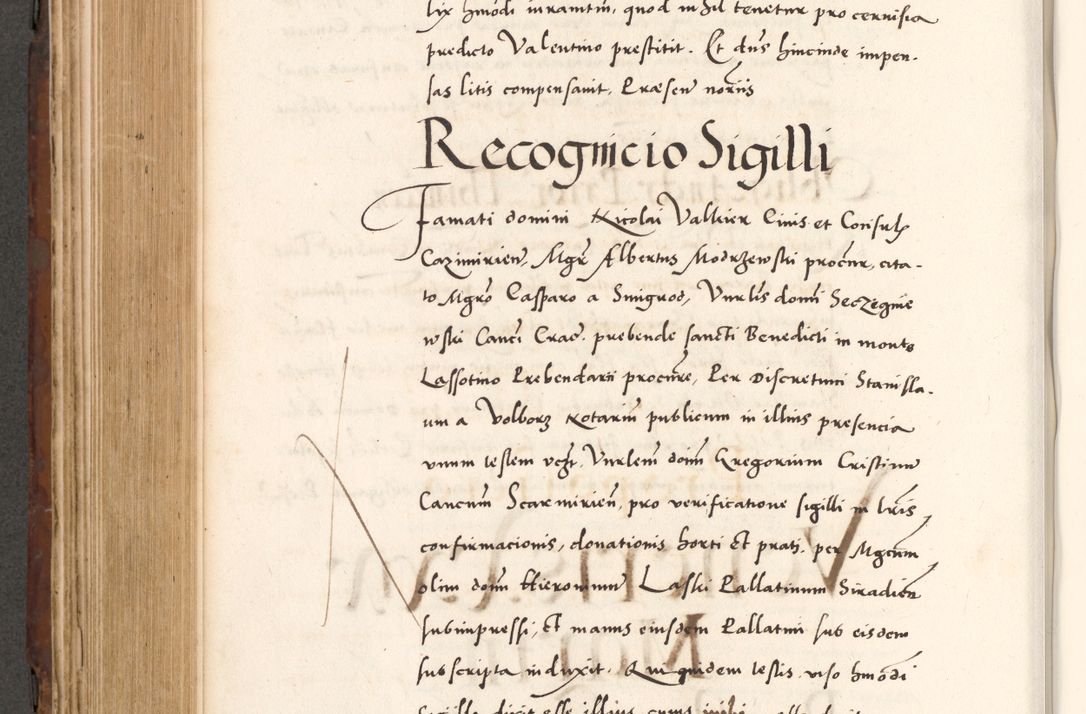 hmõdi iuramtm̃, quod nihil tenetur pro cernisia
predicto Valentino prestitit. Et dñs hincinde impen-
sas litis compensauit. Præsen̄ nõriis
Recognicio Sigilli
Famati domini Nicolai Valkier Ciuis et Consul
Cazimirien̄, Mgr̃ Albertus Modrzewski procur̃, cita-
to Mgr̃o Casparo a Smigrod, Vnrl̃is domi Seczignie
wski Canci Crac̃. prebende sancti Benedicti in monte
Lassotino Prebendarii procur̃e, Per Discretum Stanisla-
um a Volborz Notariũ publicum in illius presencia
vnum testem vcz̃t. Vnrlem̃ doim̃ Gregorium Cristinum
Cancum̃ Scarmirien̄, pro verificatione sigilli in lr̃is
confirmacionis, donationis horti et prati, per Mgcum̃
olim dom̃ Hieronimum Laski Pallatinum Siradien̄
subimpressi, et manus eiusdem Pallatini sub eisdem
subscripta induxit. Qui quidem testis viso hmõdi
Sigillo dicit esse illius, cuius